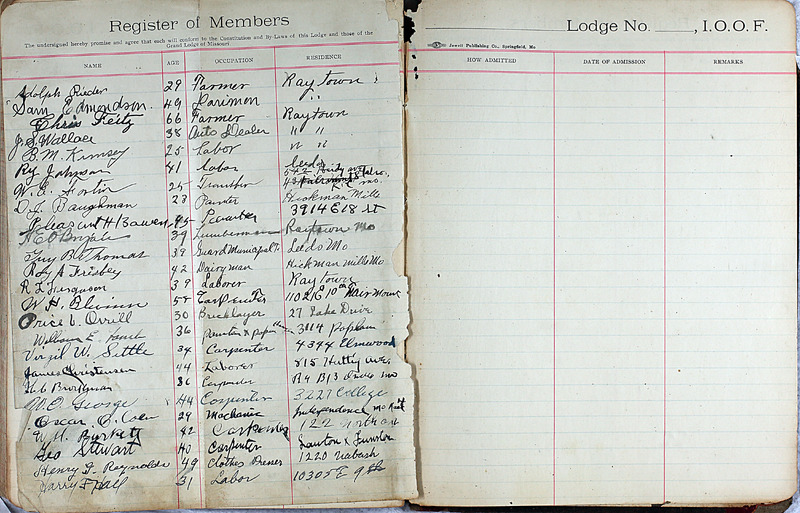 Register of Members
The undersigned hereby promise and agree that each will conform to the Constitution and By-Laws of this Lodge and those of the
Grand Lodge of Missouri
NAME AGE OCCUPATION RESIDENCE
Adolph Rieder 29 Farmer Raytown
Sam Edmondson. 49 "
Chris 66 Farmer Raytown
J. S. Wallace 38 Auto Dealer " "
B. M. Kimsey 25 Labor " "
Ray Johnson 41 Labor Leeds
W. E. 25
D. J. Baughman 28 Hickman Mills
Pleasant H Bowen 45 3914 E 18 st
39 Lumberman Raytown Mo
Guy B Thomas 39 Guard Municipal Leeds Mo
Roy A Frisbey 42 Dairyman Hickman Mills Mo
R L Ferguson 39 Laborer Raytown
W H. 58 Carpenter 11021 E 10th Fair Mount
Price L. Orrill 30 Bricklayer 27 Lake Drive
William E. 36 3914
Virgil W. Settle 34 Carpenter 4394 Elmwood
James Christensen 44 Laborer 815 Ave.
36 Carpenter R4 B13 Mo
W. O. George 44 Carpenter 3227 College
Oscar O. 29 Mechanic Independence Mo
W. H. Burkett 42 Carpenter 122 North
Geo Stewart 40 Carpenter
Henry F. Reynolds 49 Clothes 1220 Wabash
Harry F Hall 31 Labor 10305 E 9th
Lodge No. , I. O. O. F.
Jewett Publishing Co., Springfield, Mo
HOW ADMITTED DATE OF ADMISSION REMARKS